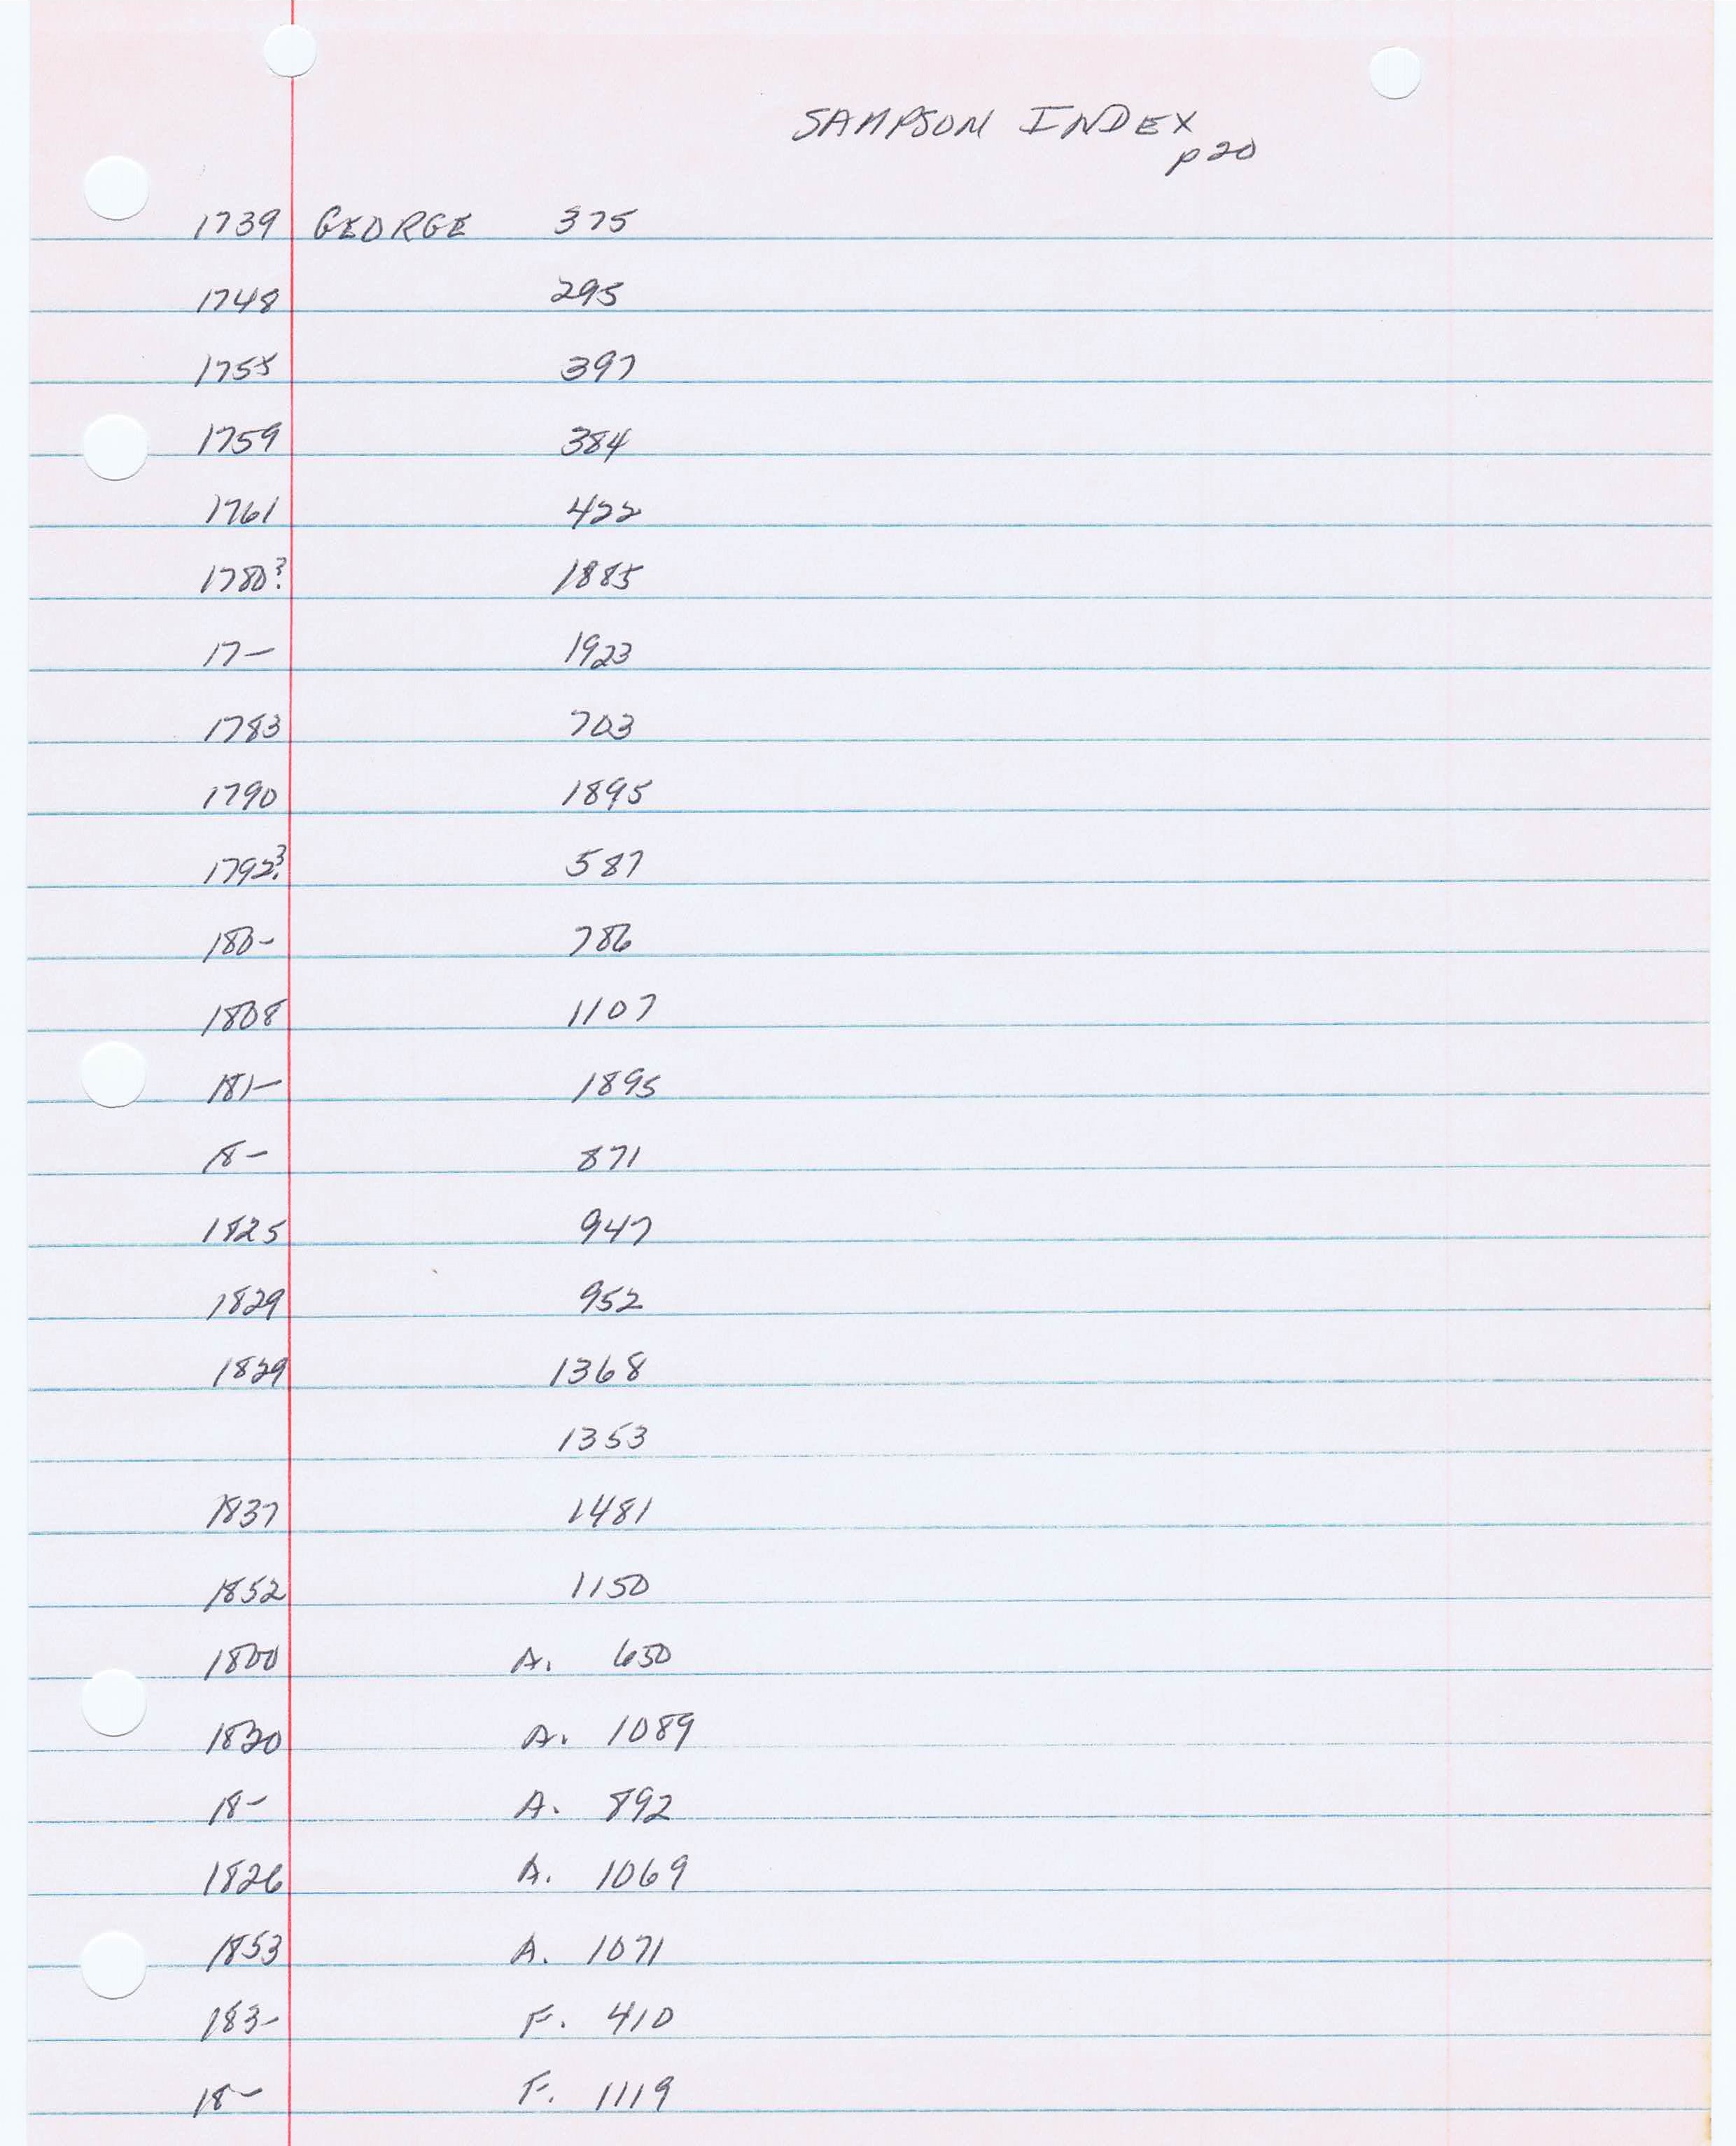 SAMPSON INDEX
p20
1739 GEORGE 375
1748 295
1755 397
1759 384
1761 422
1780? 1885
17— 1923
1783 703
1790 1895
1792? 587
180- 786
1808 1107
181— 1895
18— 871
1825 947
1829 952
1829 1368
1353
1837 1481
1852 1150
1800 A. 650
1820 A. 1089
18- A. 892
1826 A. 1069
1853 A. 1071
183- F. 410
18— F. 1119